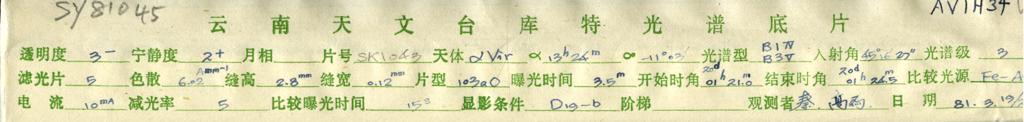 SY81045 AV1H34
云南天文台库特光谱底片
透明度 3⁻ 宁静度 2+ 月相 片号 SK1043 天体 αVir α 13ʰ24ᵐ -11°03′ 光谱型 B1Ⅳ B3Ⅴ 入射角 45°6′27″ 光谱级 3
滤光片 5 色散 6.02 Åmm⁻¹ 缝高 2.8ᵐᵐ 缝宽 0.12ᵐᵐ 片型 103aO 曝光时间 3.5ᵐ 开始时角 20d 01ʰ21.0ᵐ 结束时角 20d 01ʰ24.5ᵐ 比较光源 Fe-A
电流 10mA 减光率 5 比较曝光时间 15ˢ 显影条件 D19-b 阶梯 观测者 秦 高 日期 81.3.19/